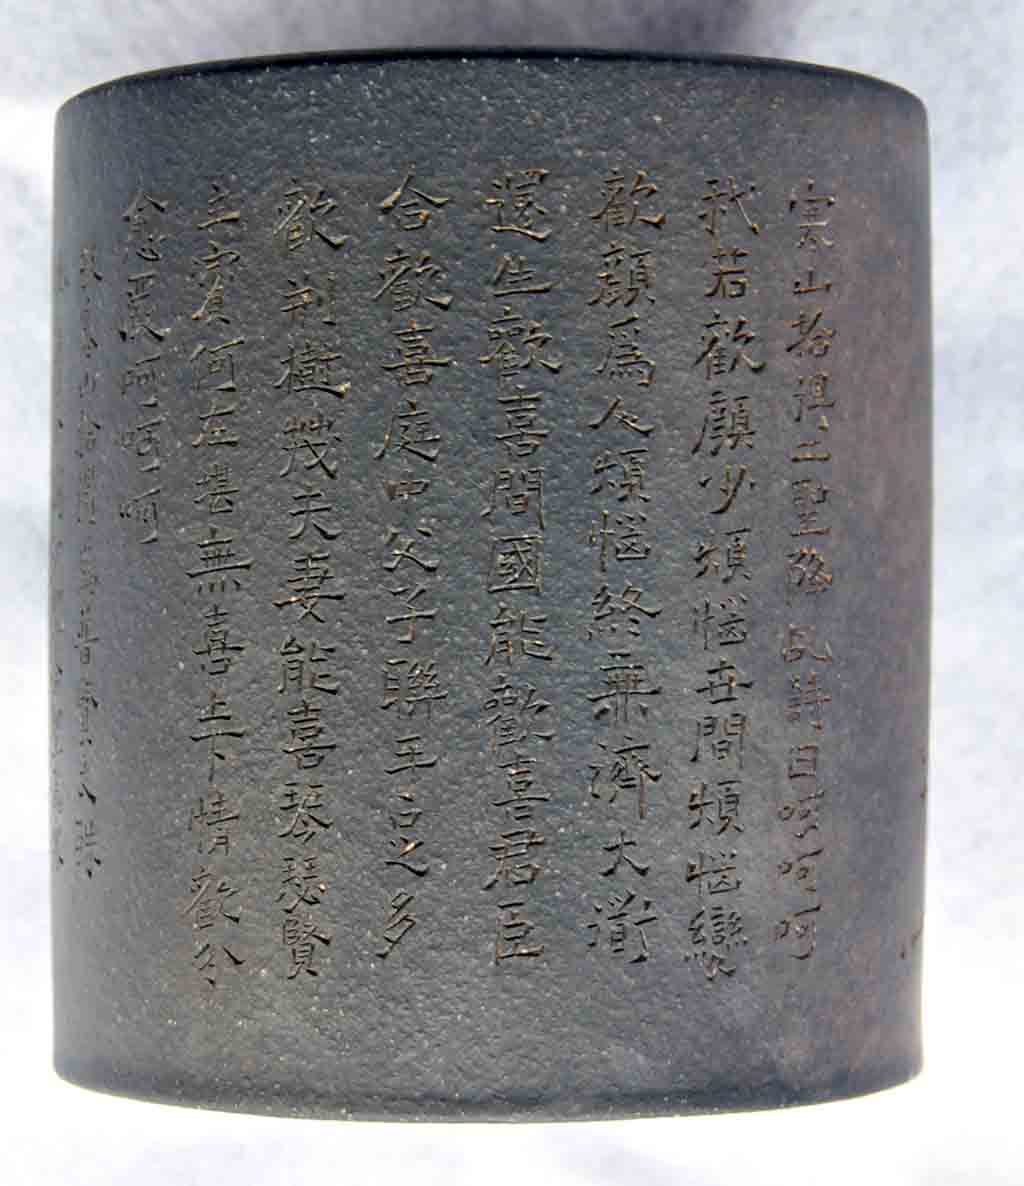 寒山拾得二聖降乩詩曰呵呵呵
我若歡顏少煩惱世間煩惱變
歡顏爲人煩惱終無濟大衜
還生歡喜間國能歡喜君臣
合歡喜庭中父子聯之多
歡荊樹茂夫妻能喜琴瑟賢
主賓何在堪無喜上下情歡分
愈嚴呵呵呵
山拾得